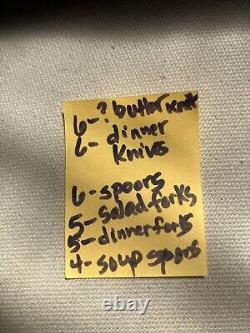 6-? butter
6- dinner
knivs
6- spoons
5- salad forks
5- dinner forks
4- soup spoons
ebay